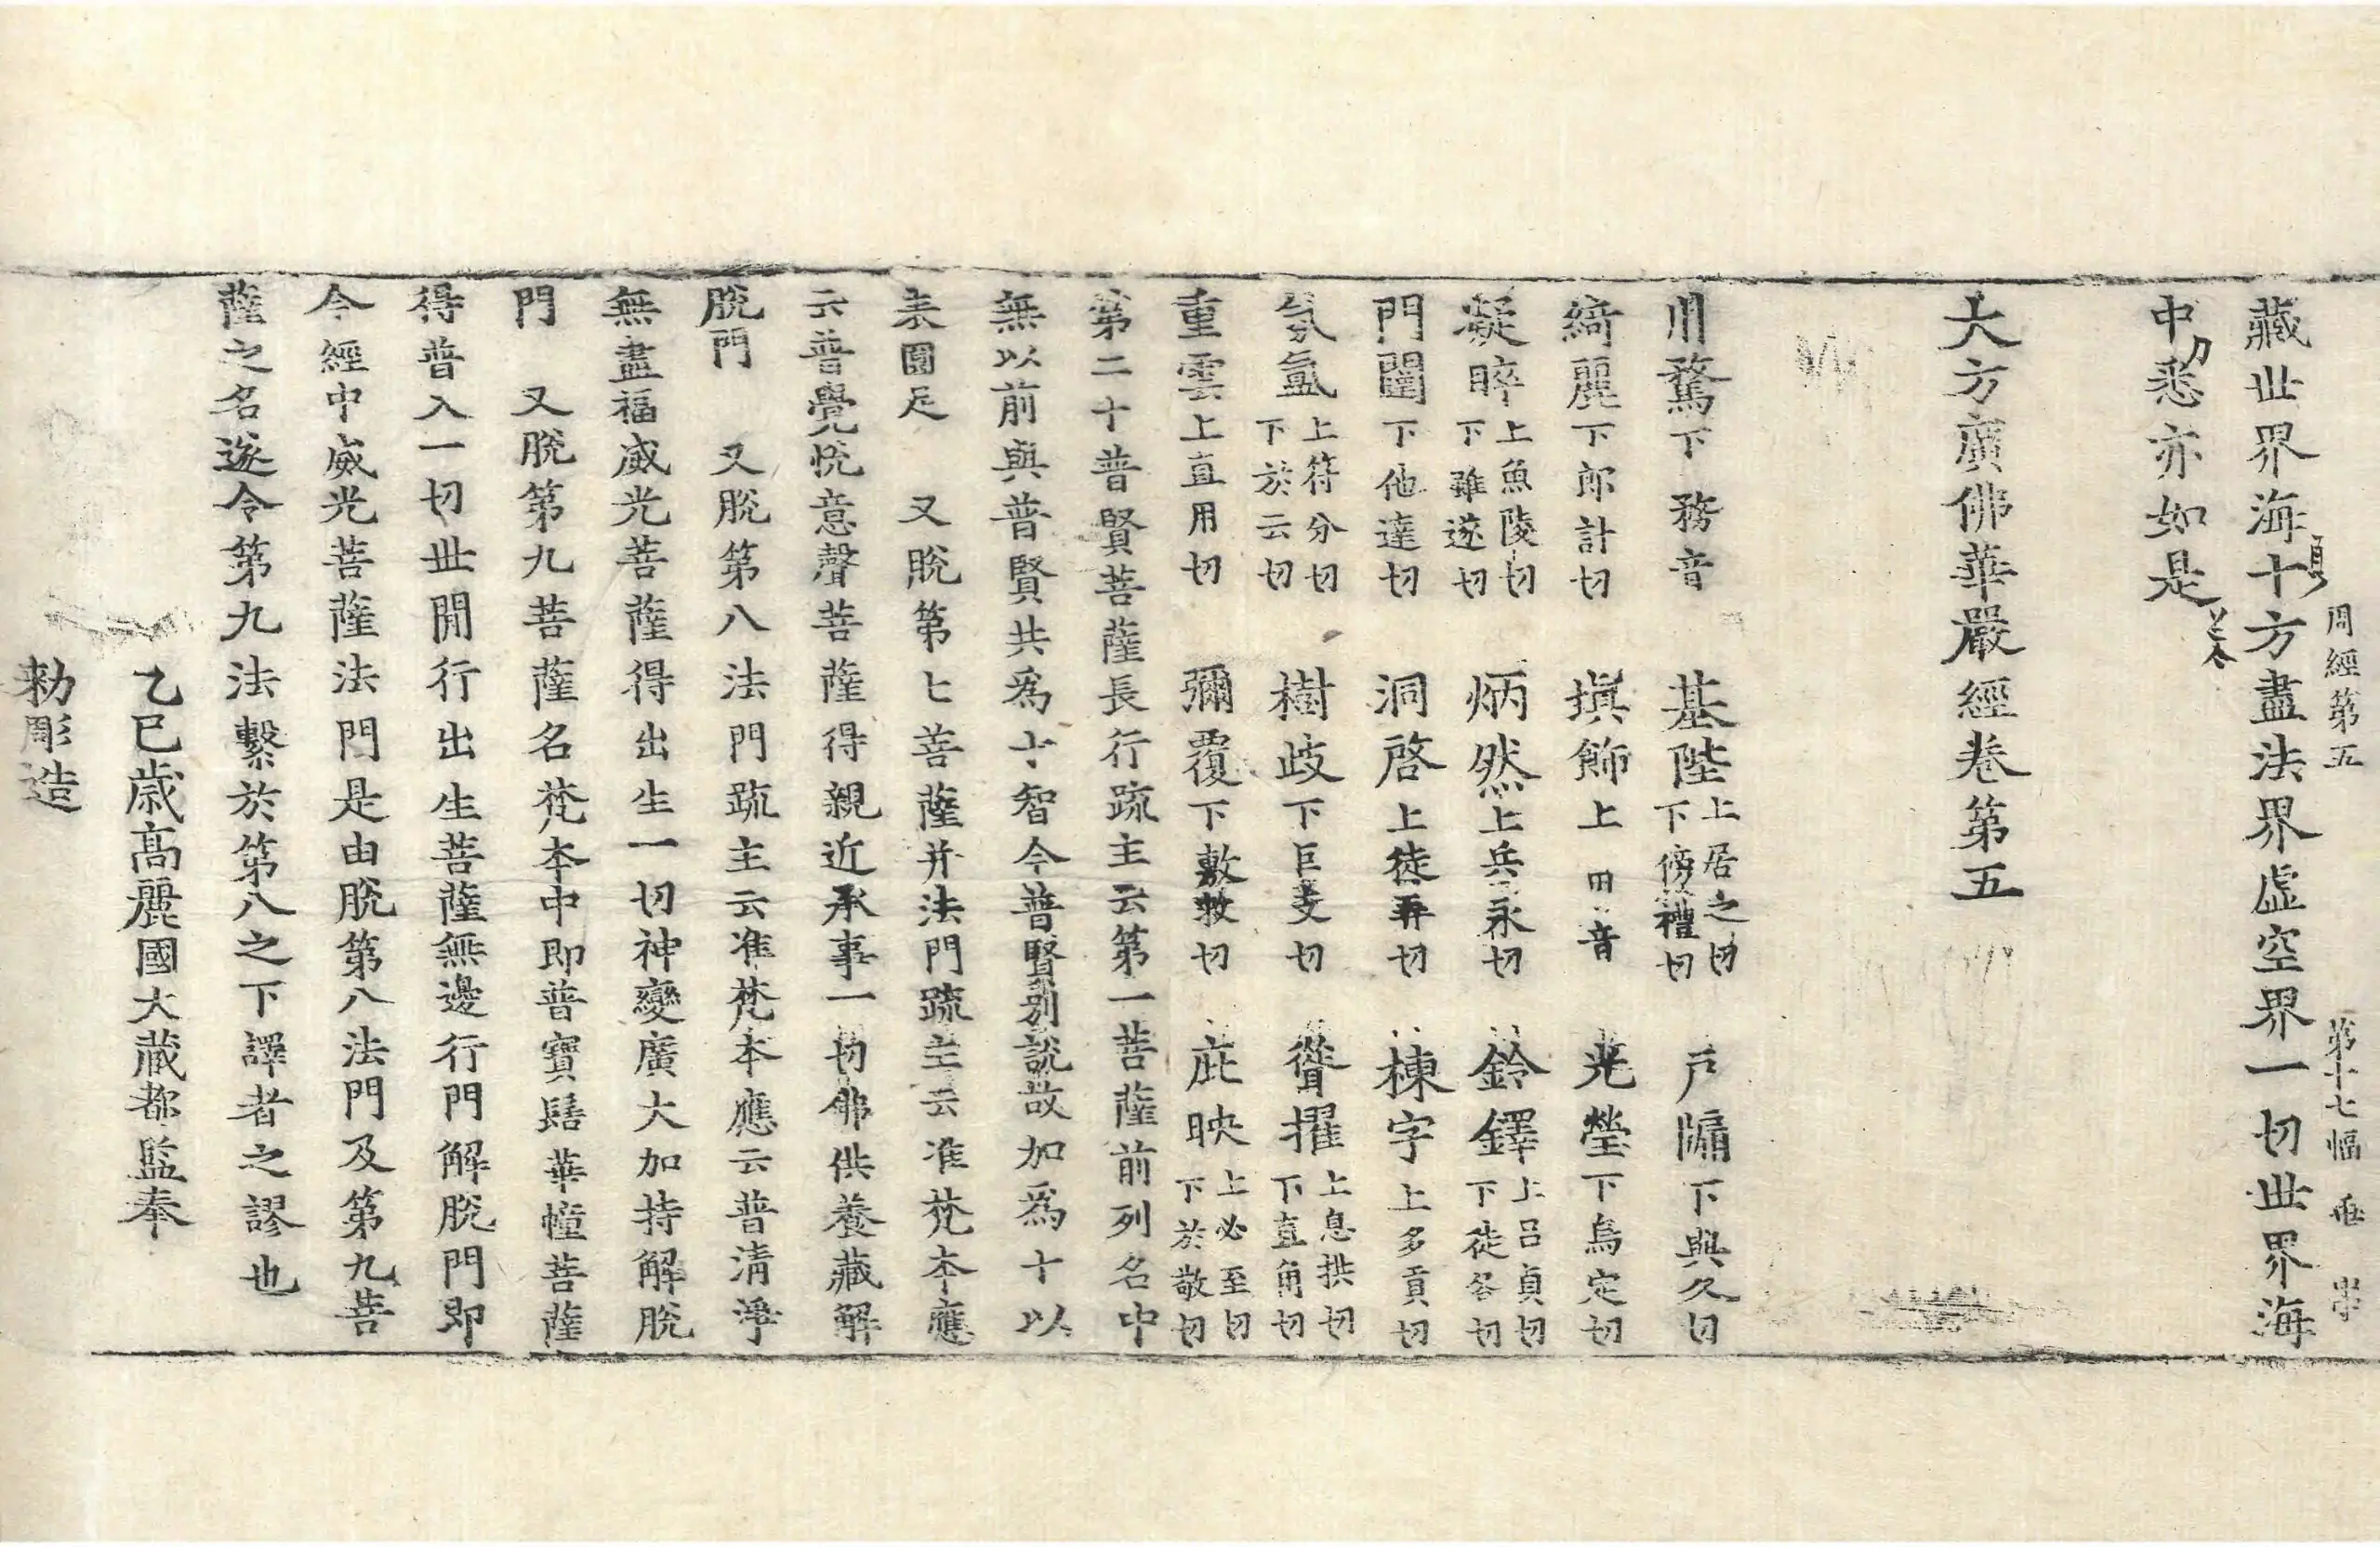 周經第五 第十七幅 垂
藏世界海十方盡法界虛空界一切世界海
中悉亦如是
大方廣佛華嚴經卷第五
川騖下務音 基陛上居之切下傍禮切 戶牖下與久切
綺麗下郎計切 塡飾上田音 光瑩下烏定切
凝睟上魚陵切下雖遂切 炳然上兵永切 鈴鐸上呂貞切下徒各切
門闥下他達切 洞啓上徒弄切 棟宇上多貢切
氛氳上符分切下於云切 樹歧下巨支切 聳擢上息拱切下直角切
重雲上直用切 彌覆下敷救切 庇映上必至切下於敬切
第二十普賢菩薩長行䟽主云第一菩薩前列名中
無以前與普賢共爲十智今普賢別說故加爲十以
表圓足 又脫第七菩薩并法門䟽主云准梵本應
云普覺悅意聲菩薩得親近承事一切佛供養藏解
脫門 又脫第八法門䟽主云准梵本應云普清淨
無盡福威光菩薩得出生一切神變廣大加持解脫
門 又脫第九菩薩名梵本中即普寶髻華幢菩薩
得普入一切世閒行出生菩薩無邊行門解脫門即
今經中威光菩薩法門是由脫第八法門及第九菩
薩之名遂令第九法繫於第八之下譯者之謬也
乙巳歳高麗國大藏都監奉
勅彫造